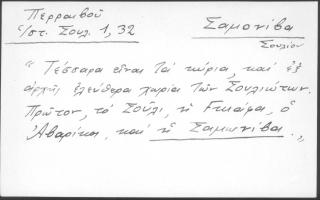 Περραιβοῦ
Ἱστ. Σουλ. 1, 32
Σαμονίβα
Σουλίου
"Τέσσαρα εἶναι τὰ κύρια, καὶ ἐξ
ἀρχῆς ἐλεύθερα χωρία τῶν Σουλιώτων.
Πρῶτον, τὸ Σοῦλι, ἡ Γκιάφα, ὁ
Ἀβαρίκος, καὶ ἡ Σαμωνίβα.„